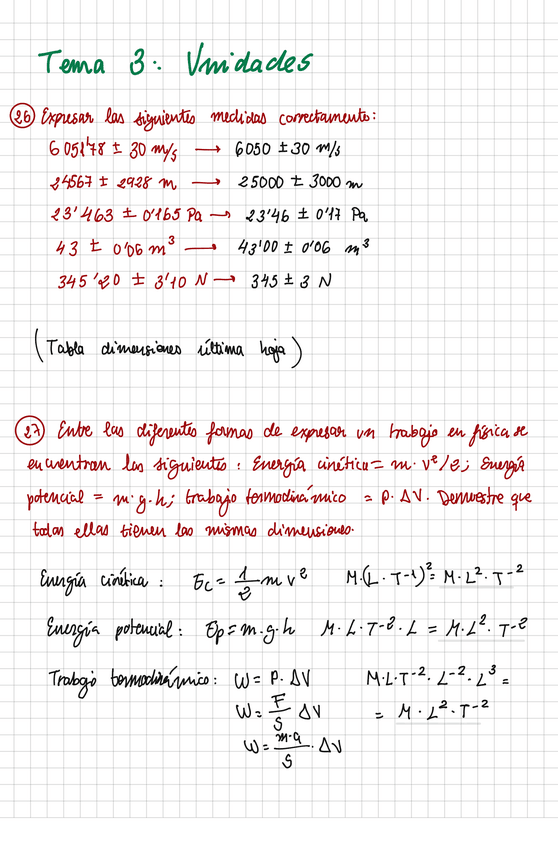 Tema 3: Unidades
26 Expresar las siguientes medidas correctamente:
6 051'78 ± 30 m/s → 6050 ± 30 m/s
24567 ± 2928 m → 25000 ± 3000 m
23'463 ± 0'165 Pa → 23'46 ± 0'17 Pa
43 ± 0'06 m³ → 43'00 ± 0'06 m³
345'20 ± 3'10 N → 345 ± 3 N
(Tabla dimensiones última hoja)
27 Entre las diferentes formas de expresar un trabajo en física se
encuentran las siguientes: Energía cinética = m·v²/2; Energía
potencial = m·g·h; trabajo termodinámico = P·ΔV. Demuestre que
todas ellas tienen las mismas dimensiones.
Energía cinética: Ec = 1/2 m v² M·(L·T-1)² = M·L²·T-2
Energía potencial: Ep = m·g·h M·L·T-2·L = M·L²·T-2
Trabajo termodinámico: W = P·ΔV M·L·T-2·L-2·L3 =
W = F/S ΔV = M·L2·T-2
W = m·a/S·ΔV